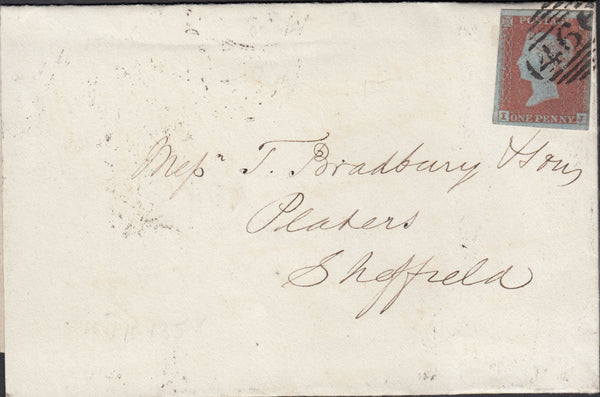 PO
46
I J
ONE PENNY
Mess^rs T. Bradbury & Sons
Platers
Sheffield